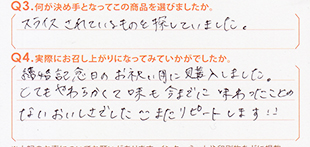 Q3.何が決め手となってこの商品を選びましたか。
スライスされているものを探していました。
Q4.実際にお召し上がりになってみていかがでしたか。
結婚記念日のお祝い用に購入しました。
とてもやわらかくて味も今までに味わったことの
ないおいしさでした またリピートします!!